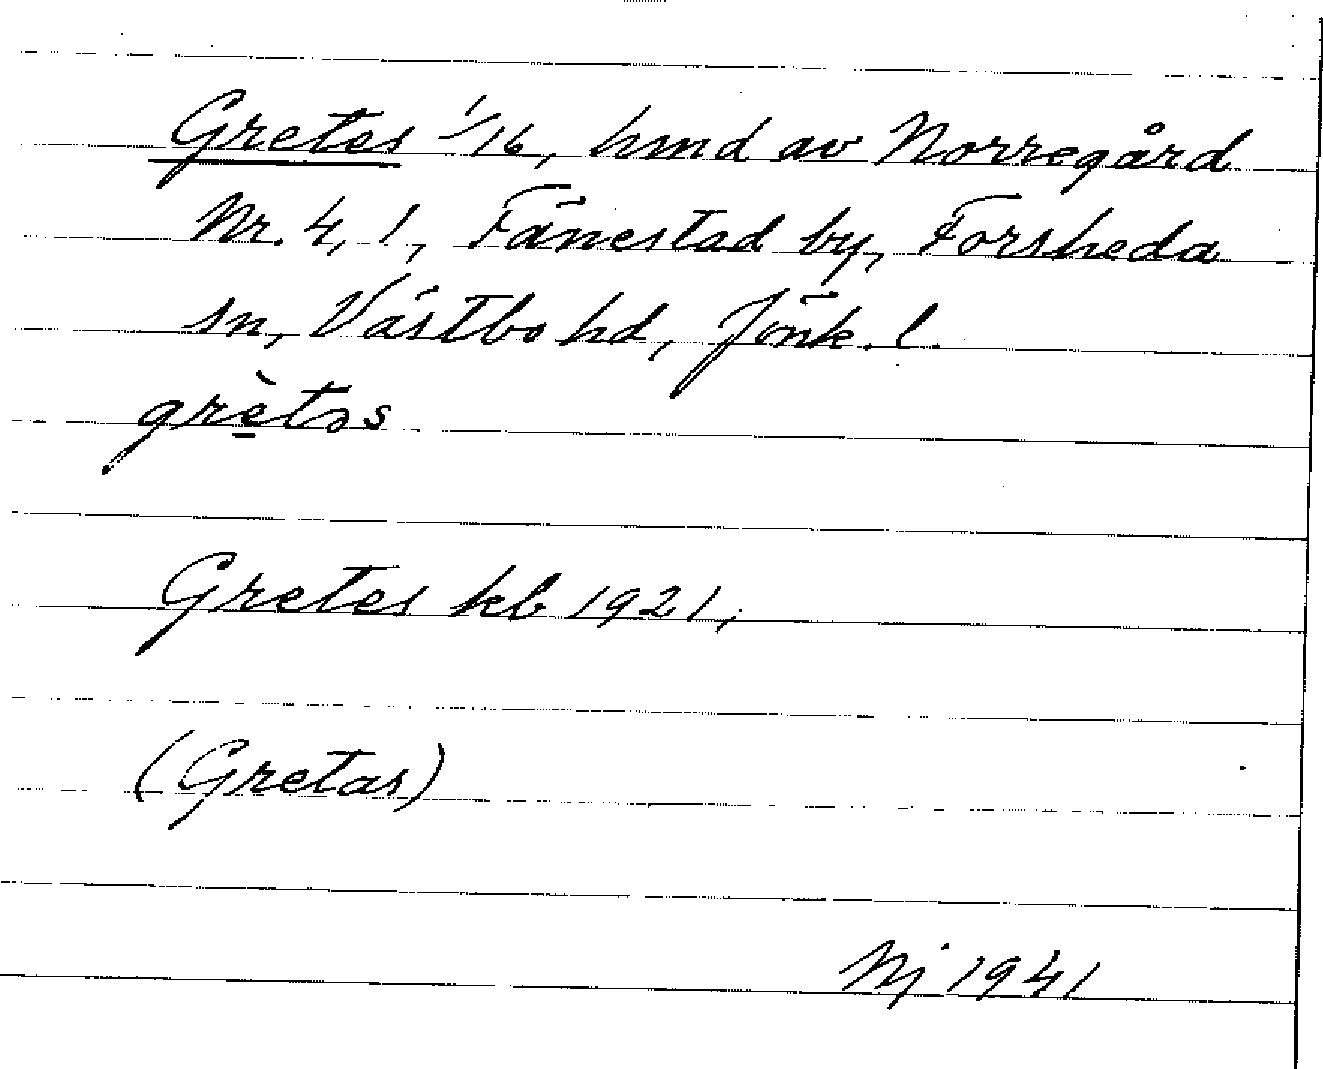 Gretes 1/16, hmd av Norregård
Nr. 4, 1, Fånestad by, Forsheda
sn, Västbo hd, Jönk. l.
grètəs
Gretes kb 1921,
(Gretas)
Nj 1941